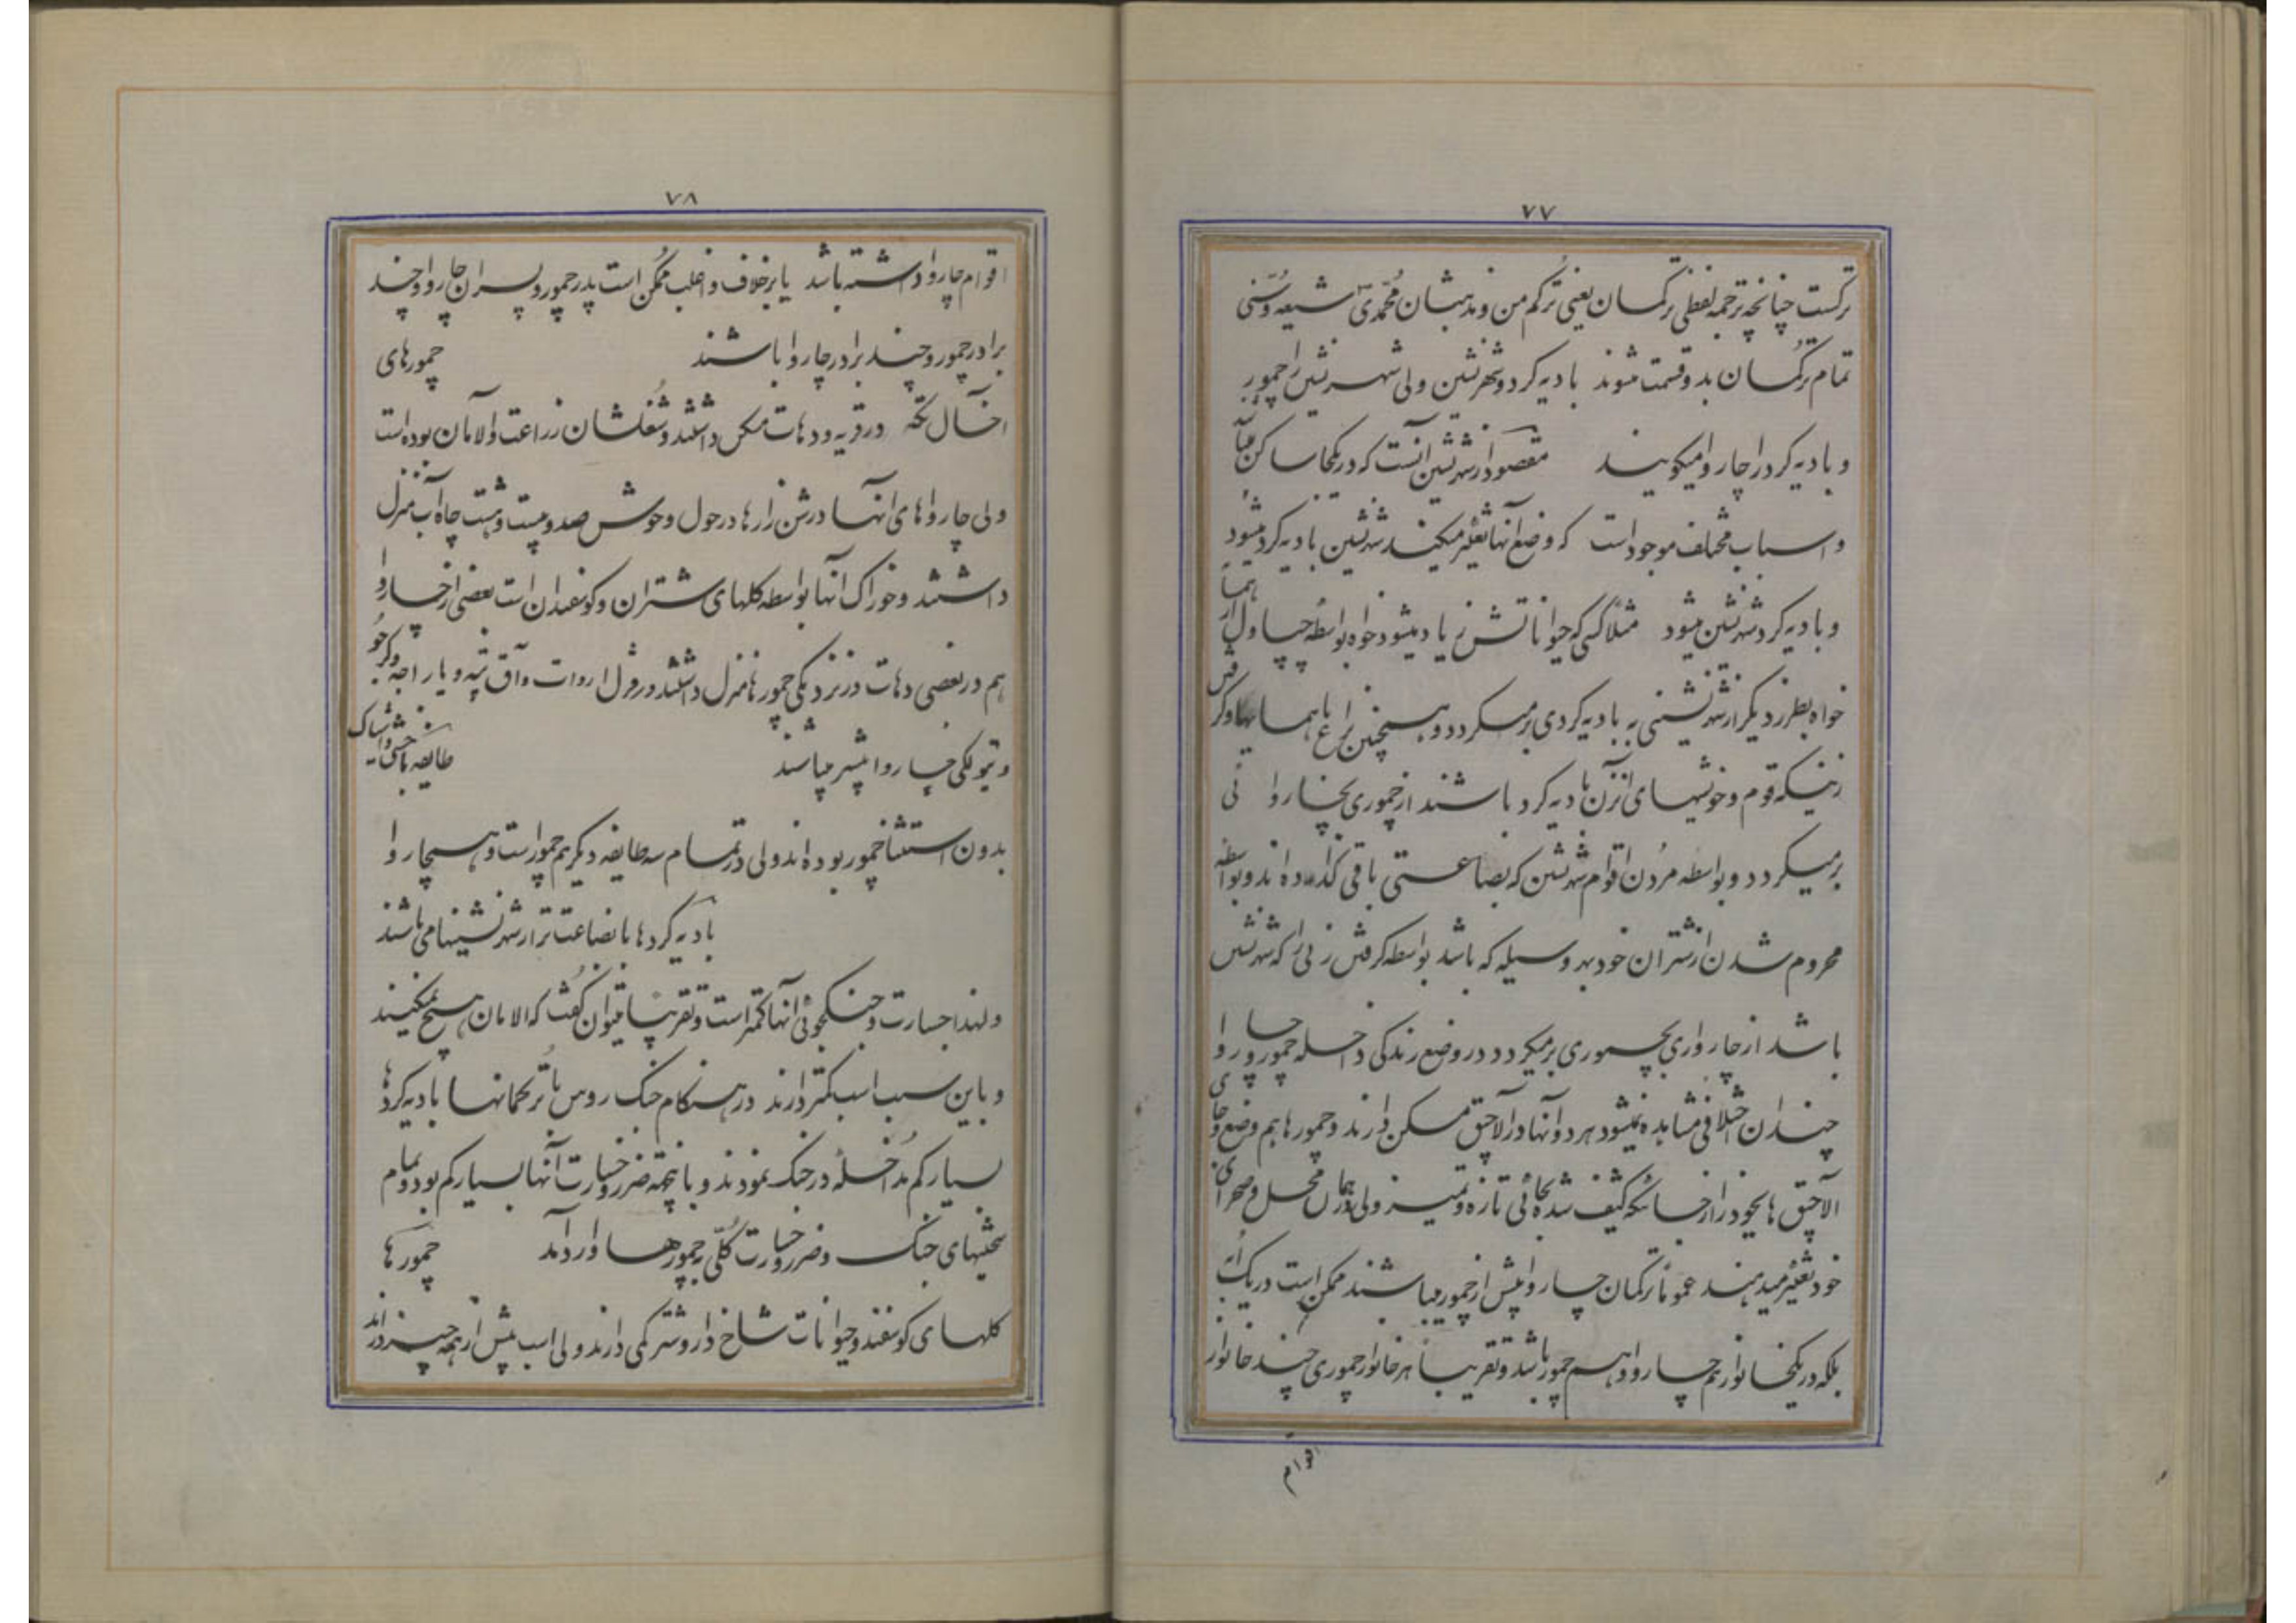 ۷۷
ترکست چنانچه ترجمه لفظی ترکمان یعنی تُرکم من و مذهبشان مُحمّدی شیعه و سُنی
تمام ترکمان بدو قسمت میشوند بادیه کرد و شهرنشین ولی شهرنشین را چمور
و بادیه کرد را چاروا میکویند مقصود از شهرنشین آنست که در یکجا ساکن
و اسباب مختلف موجود است که وضع آنها تغییر میکند شهرنشین بادیه کرد میشود
و بادیه کرد شهرنشین میشود مثلاً کسی که حیواناتش زیاد میشود خواه بواسطه چپاول از
خواه بطرز دیگر از شهرنشینی به بادیه کردی برمیکردد و همچنین با همسایها و کر
زنیکه قوم و خویشهای آنزن بادیه کرد باشند از چموری بچاروا ئی
برمیکردد و بواسطه مُردن اقوام شهرنشین که بضاعتی باقی کذارده اند و بواسطه
محروم شدن از شتران خود بهر وسیله که باشد بواسطه کرفتن زنی را که شهرنشین
باشد از چاروائی بچموری برمیکردد در وضع زندکی داخله چمور و چاروا
چندان اختلافی مشاهده نمیشود هر دو آنها در آلاچیق مسکن دارند و چمورها هم وضع و جای
الاچیق های خود را از جائیکه کثیف شده بجائی تازه و تمیز ولی در همان محل و صحرای
خود تغییر میدهند عموماً ترکمان چاروا بیش از چمور میباشند ممکن است در یک
بلکه در یکخانوار هم چاروا و هم چمور باشد و تقریباً هر خانوار چموری چند خانوار
اقوام
۷۸
اقوام چاروا داشته باشد یا برخلاف و اغلب ممکن است پدر چمور و پسران چاروا و چند
برادر چمور و چند برادر چاروا باشند چمورهای
آخال تکه در قریه و دهات مسکن داشتند و شغلشان زراعت و الامان بوده است
ولی چارواهای آنها در شن زارها در حول و حوش صد و بیست و هشت چاه آب منزل
داشتند و خوراک آنها بواسطه کلهای شتران و کوسفندان است بعضی از چاروا
هم در بعضی دهات در نزدیکی چمورها منزل داشتند در قزل اروات و آق تپه و یاراجه و
و بیوکی چاروا بیشتر میباشند طایفه
بدون استثنا چمور بوده اند ولی در تمام سه طایفه دیگر هم چمور است و هم چاروا
بادیه کردها با بضاعت تر از شهرنشینها می باشند
و لهذا جسارت و جنکجوئی آنها کمتر است و تقریباً میتوان کفت که الامان هیچ نمیکنند
و باین سبب اسب کمتر دارند در هنکام جنک روس با تُرکمانها بادیه کردها
بسیار کم مُداخله در جنک نمودند و بانیجهة ضرر و خسارت آنها بسیار کم بود و تمام
سختیهای جنک و ضرر و خسارت کُلّی بچمورها وارد آمد چمورها
کلهای کوسفند و حیوانات شاخ دار و شتر کمی دارند ولی اسب بیش از همه چیز دارند